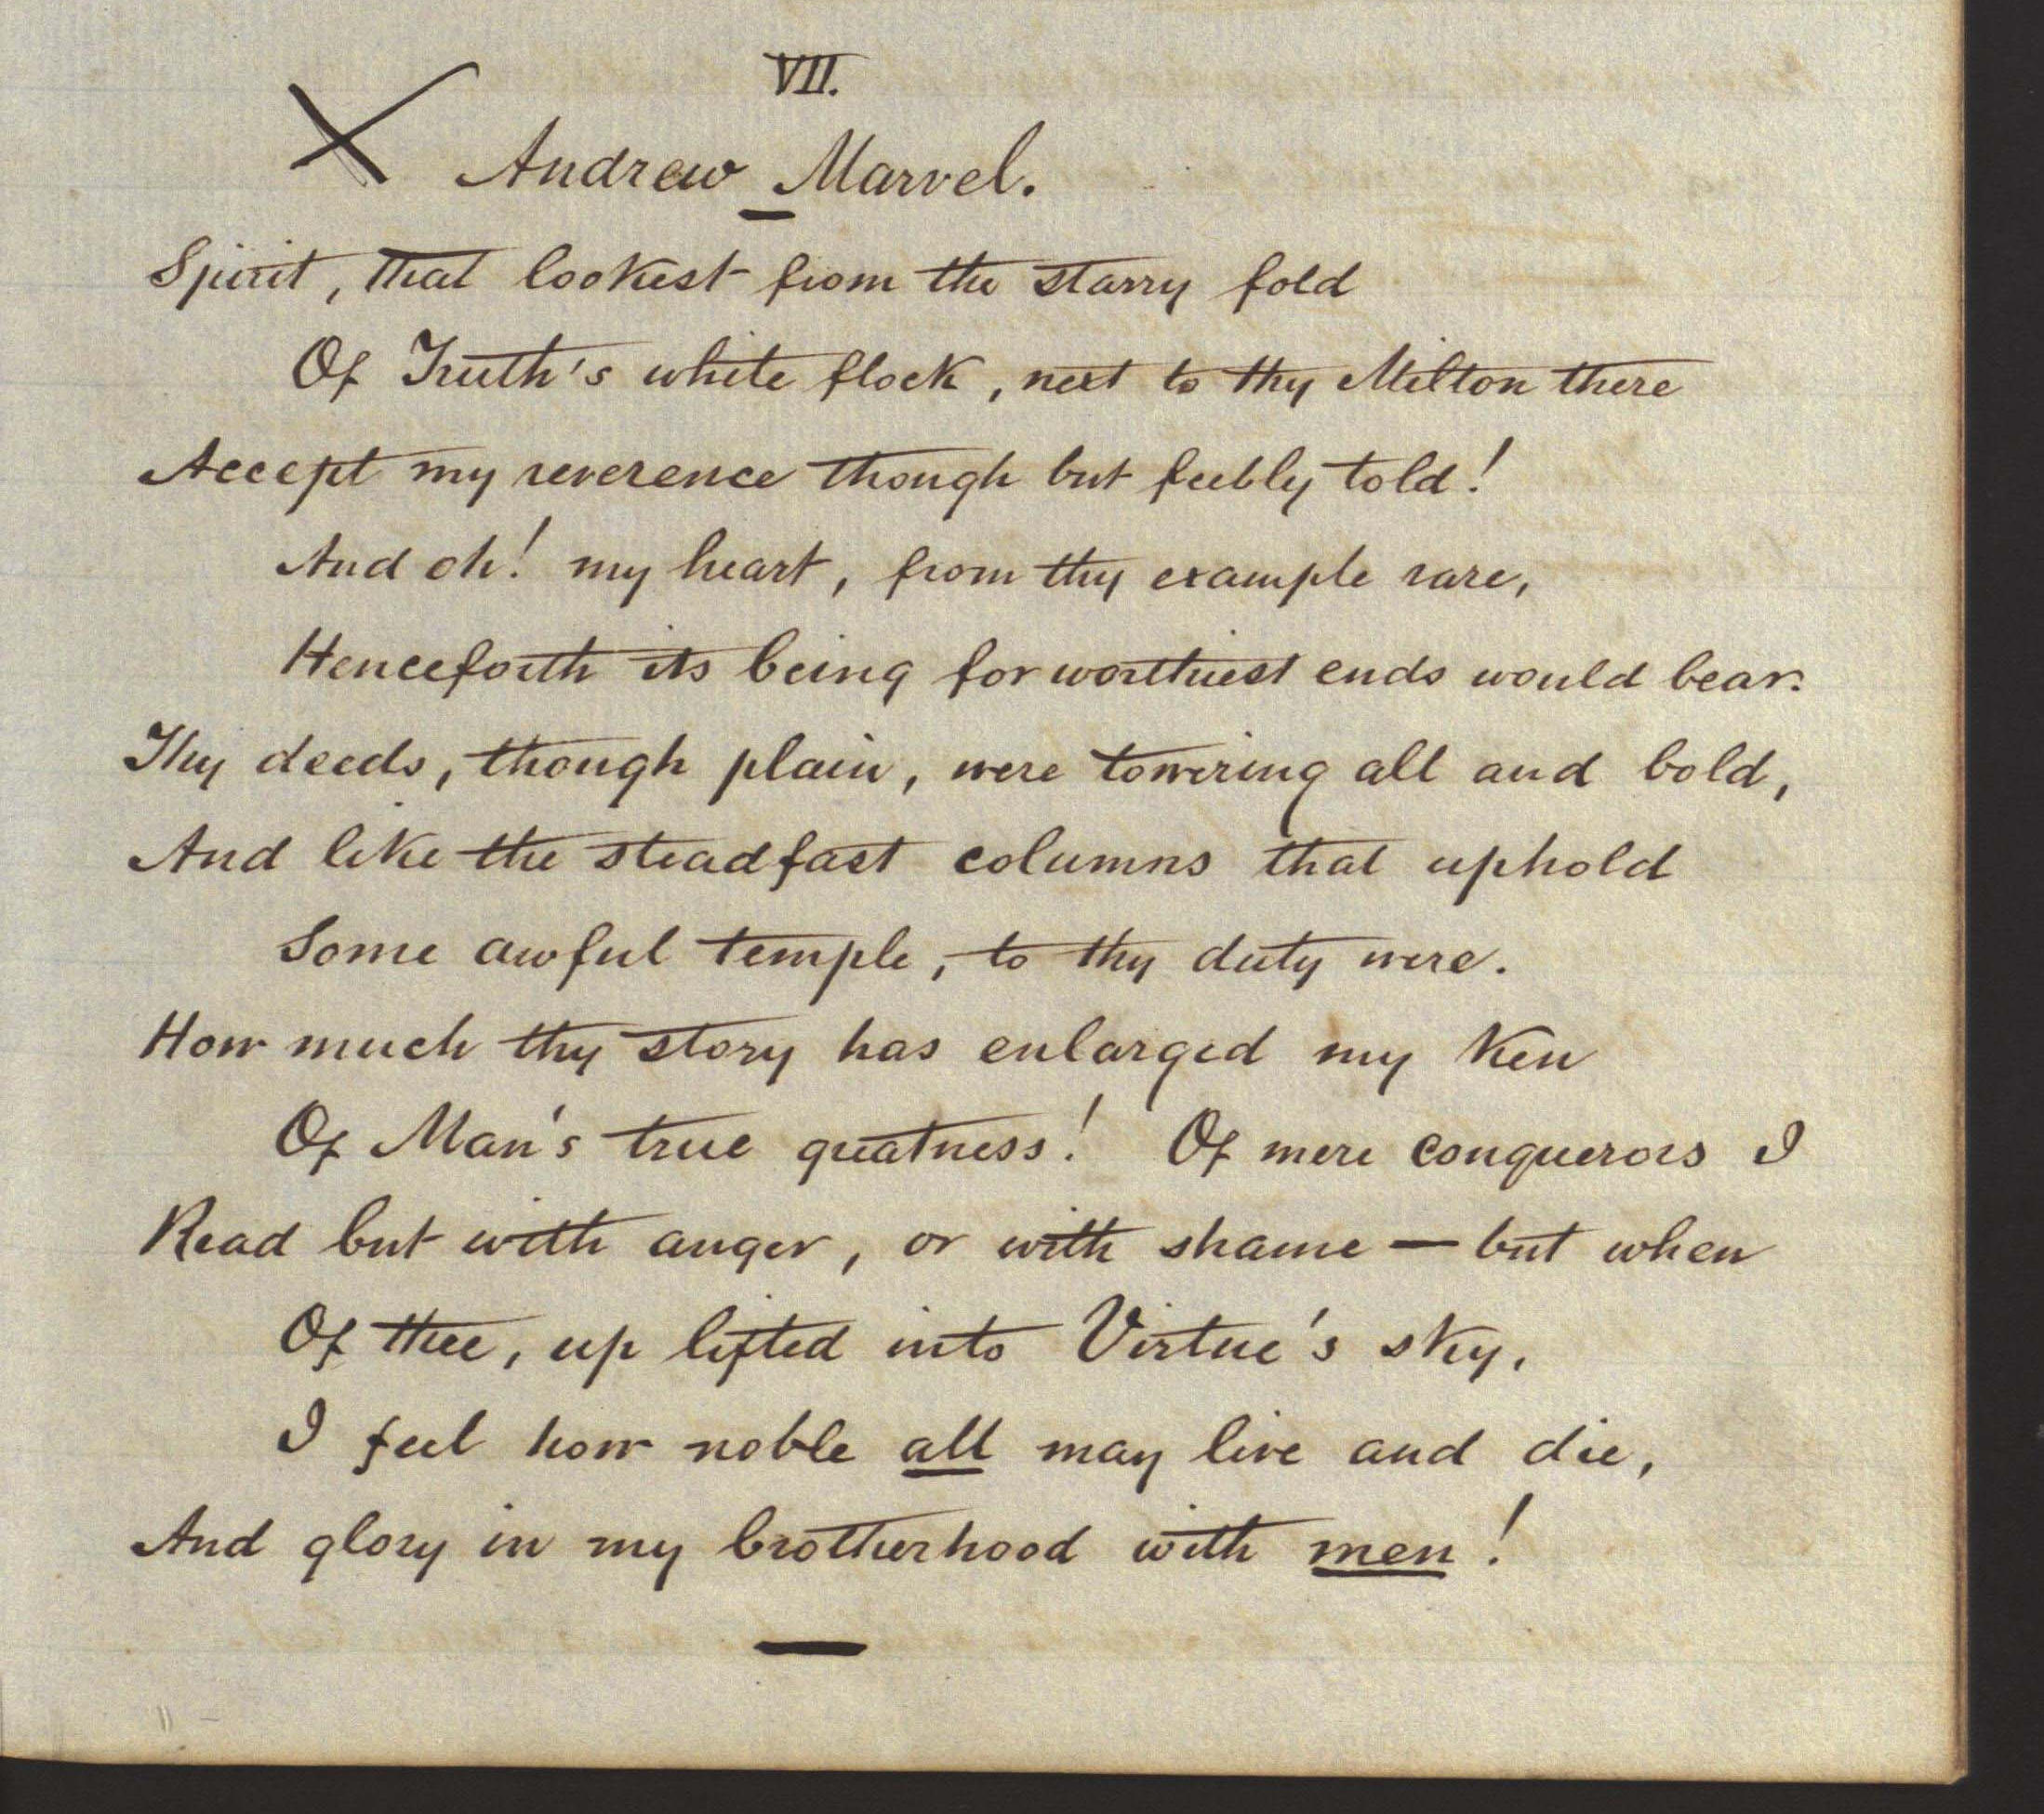 VII.
Andrew Marvel.
Spirit, that lookest from the starry fold
Of Truth's white flock, next to thy Milton there
Accept my reverence though but feebly told!
And oh! my heart, from thy example rare,
Henceforth its being for worthiest ends would bear.
Thy deeds, though plain, were towering all and bold,
And like the steadfast columns that uphold
Some awful temple, to thy duty were.
How much thy story has enlarged my ken
Of Man's true greatness! Of mere conquerors I
Read but with anger, or with shame — but when
Of thee, up lifted into Virtue's sky,
I feel how noble all may live and die,
And glory in my brotherhood with men!